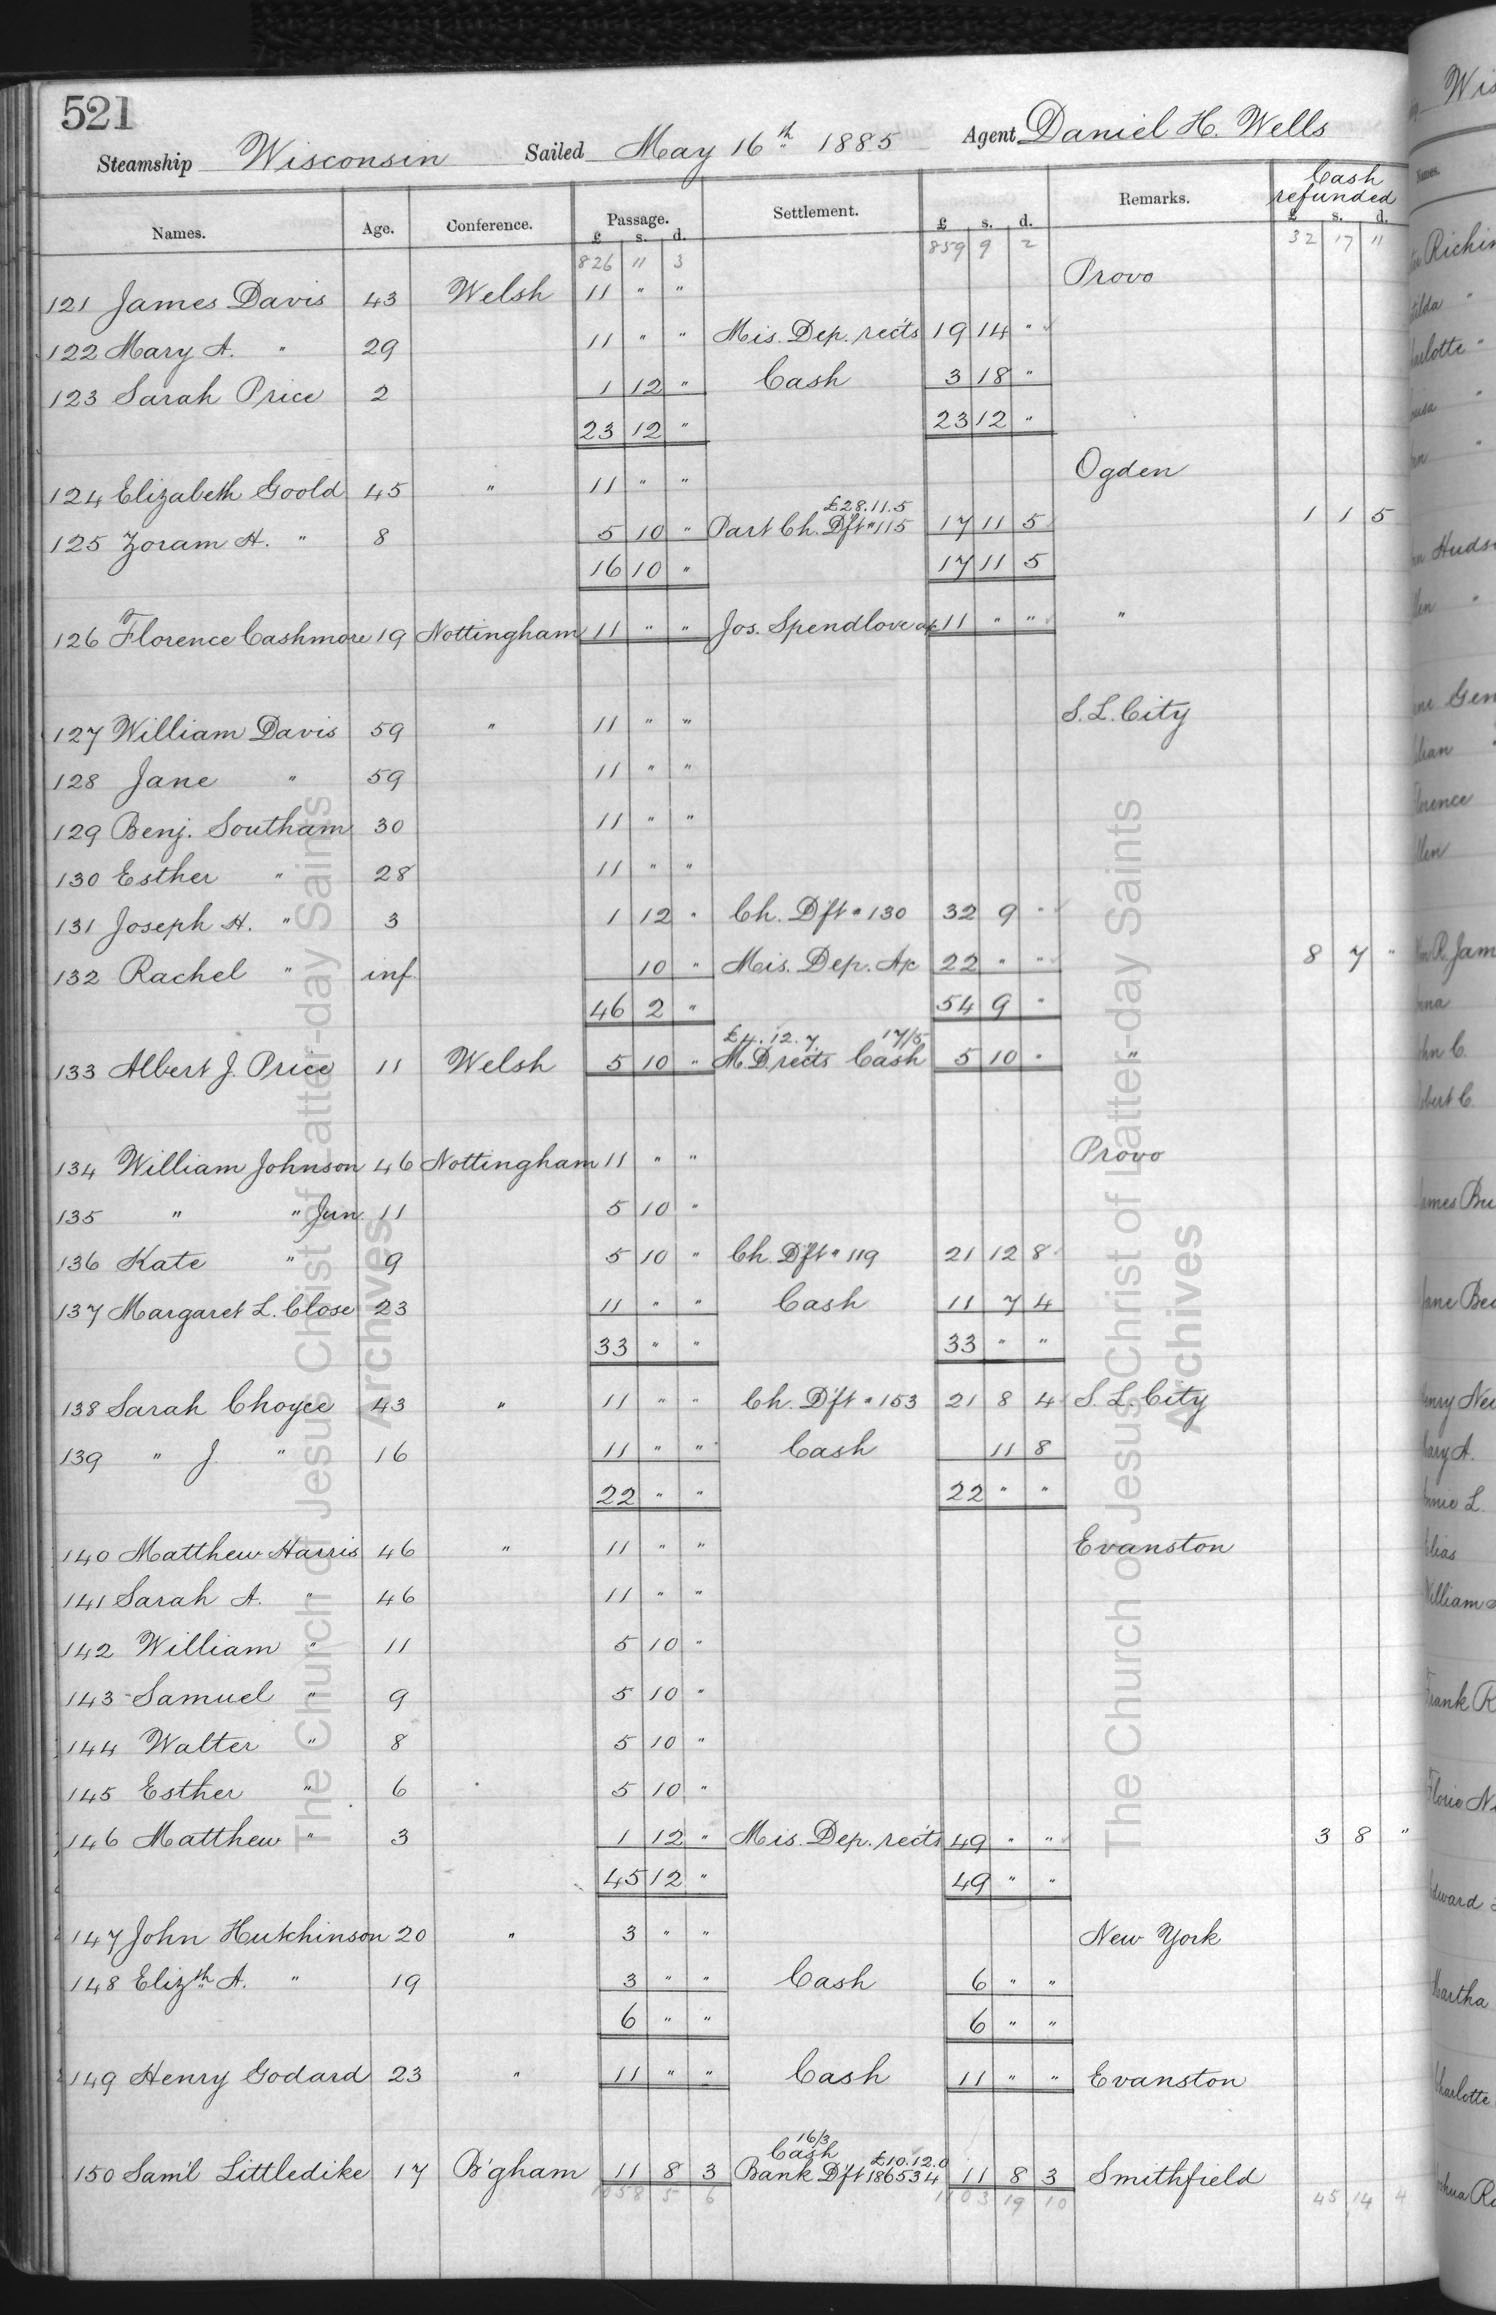 521
Steamship Wisconsin Sailed May 16th 1885 Agent Daniel H. Wells
Names. Age. Conference. Passage. Settlement. £ s. d. Remarks. Cash refunded
£ s. d. £ s. d.
826 11 3 859 9 2 32 17 11
121 James Davis 43 Welsh 11 " " Provo
122 Mary A. " 29 11 " " Mis. Dep. rects 19 14 "
123 Sarah Price 2 1 12 " Cash 3 18 "
23 12 " 23 12 "
124 Elizabeth Goold 45 " 11 " " Ogden
£28.11.5
125 Zoram H. " 8 5 10 " Part Ch. Dft " 115 17 11 5 1 1 5
16 10 " 17 11 5
126 Florence Cashmore 19 Nottingham 11 " " Jos. Spendlove a/c 11 " " "
127 William Davis 59 " 11 " " S. L. City
128 Jane " 59 11 " "
129 Benj. Southam 30 11 " "
130 Esther " 28 11 " "
131 Joseph H. " 3 1 12 " Ch. Dft " 130 32 9 "
132 Rachel " inf 10 " Mis. Dep. A/c 22 " " 8 7 "
46 2 " 54 9 "
£4.12.7. 17/5
133 Albert J. Price 11 Welsh 5 10 " M.D. rects Cash 5 10 " "
134 William Johnson 46 Nottingham 11 " " Provo
135 " " Jun 11 5 10 "
136 Kate " 9 5 10 " Ch. Dft " 119 21 12 8
137 Margaret L. Close 23 11 " " Cash 11 7 4
33 " " 33 " "
138 Sarah Choyce 43 " 11 " " Ch. Dft " 153 21 8 4 S. L. City
139 " J. " 16 11 " " Cash 11 8
22 " " 22 " "
140 Matthew Harris 46 " 11 " " Evanston
141 Sarah A. " 46 11 " "
142 William " 11 5 10 "
143 Samuel " 9 5 10 "
144 Walter " 8 5 10 "
145 Esther " 6 5 10 "
146 Matthew " 3 1 12 " Mis. Dep. rects 49 " " 3 8 "
45 12 " 49 " "
147 John Hutchinson 20 " 3 " " New York
148 Elizth A. " 19 3 " " Cash 6 " "
6 " " 6 " "
149 Henry Godard 23 " 11 " " Cash 11 " " Evanston
16/3
Cash £10.12.0
150 Saml Littledike 17 B'gham 11 8 3 Bank Dft 186534 11 8 3 Smithfield
1058 5 6 1103 19 10 45 14 4
The Church of Jesus Christ of Latter-day Saints
Archives
The Church of Jesus Christ of Latter-day Saints
Archives